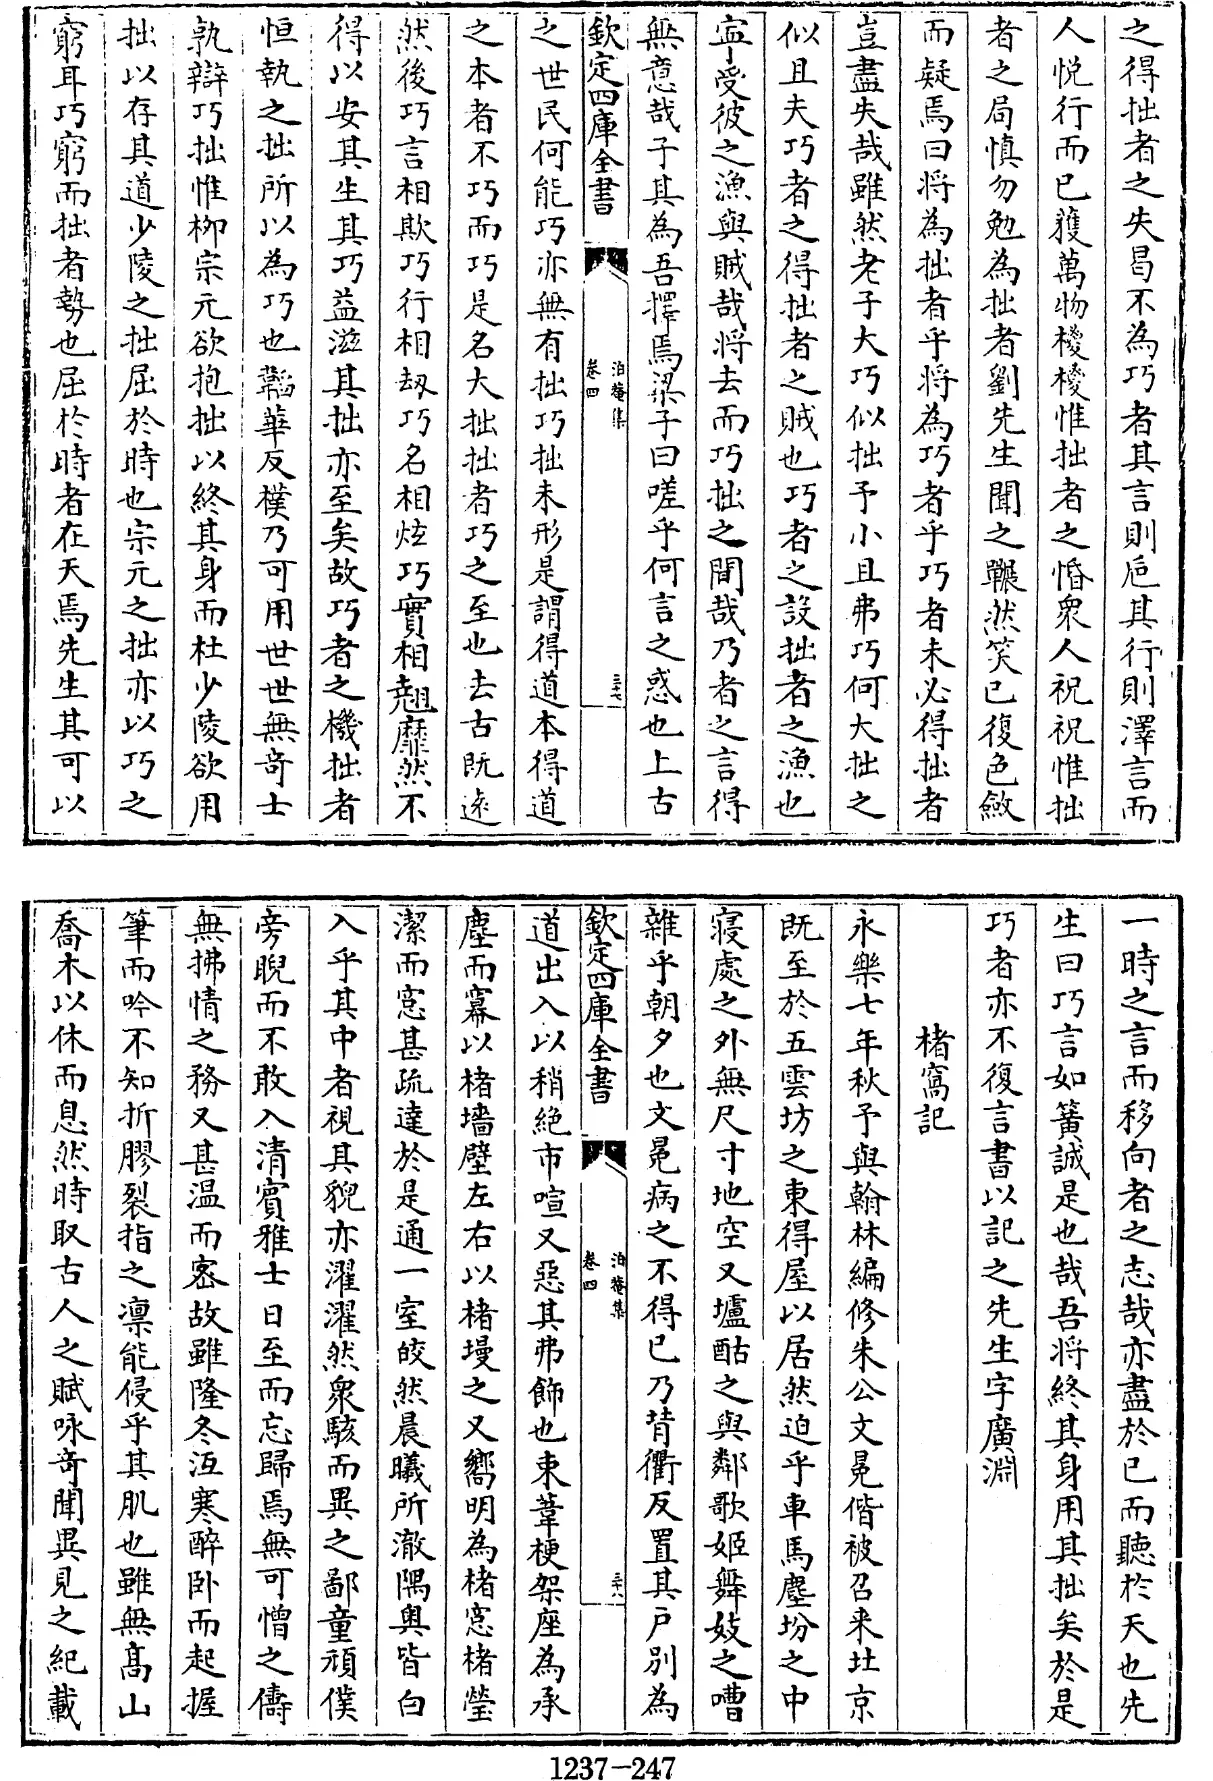 之得拙者之失曷不為巧者其言則卮其行則澤言而
人悦行而已獲萬物㮨㮨惟拙者之惛衆人祝祝惟拙
者之局慎勿勉為拙者劉先生聞之囅然笑已復色斂
而疑焉曰将為拙者乎将為巧者乎巧者未必得拙者
豈盡失哉雖然老子大巧似拙予小且弗巧何大拙之
似且夫巧者之得拙者之賊也巧者之設拙者之漁也
寧受彼之漁與賊哉将去而巧拙之間哉乃者之言得
無意哉子其為吾擇焉梁子曰嗟乎何言之惑也上古
欽定四庫全書
泊菴集
卷四
三十七
之世民何能巧亦無有拙巧拙未形是謂得道本得道
之本者不巧而巧是名大拙拙者巧之至也去古既逺
然後巧言相欺巧行相刼巧名相炫巧實相翹靡然不
得以安其生其巧益滋其拙亦至矣故巧者之機拙者
恒執之拙所以為巧也韜華反樸乃可用世世無竒士
孰辯巧拙惟栁宗元欲抱拙以終其身而杜少陵欲用
拙以存其道少陵之拙屈於時也宗元之拙亦以巧之
窮耳巧窮而拙者勢也屈於時者在天焉先生其可以
一時之言而移向者之志哉亦盡於已而聽於天也先
生曰巧言如簧誠是也哉吾将終其身用其拙矣於是
巧者亦不復言書以記之先生字廣淵
楮窩記
永樂七年秋予與翰林編修朱公文冕偕被召来北京
既至於五雲坊之東得屋以居然迫乎車馬塵坋之中
寢處之外無尺寸地空又壚酤之與鄰歌姬舞妓之嘈
雜乎朝夕也文冕病之不得已乃背衢反置其户别為
欽定四庫全書
泊菴集
卷四
三十八
道出入以稍絶市喧又惡其弗飾也束葦梗架座為承
塵而羃以楮墻壁左右以楮墁之又嚮明為楮窻楮瑩
潔而窻甚疏達於是通一室皎然晨曦所澈隅奥皆白
入乎其中者視其貌亦濯濯然衆駭而異之鄙童頑僕
旁睨而不敢入清賓雅士日至而忘歸焉無可憎之儔
無拂情之務又甚温而宻故雖隆冬沍寒醉卧而起握
筆而吟不知折膠裂指之凛能侵乎其肌也雖無髙山
喬木以休而息然時取古人之賦咏竒聞異見之紀載
1237-247